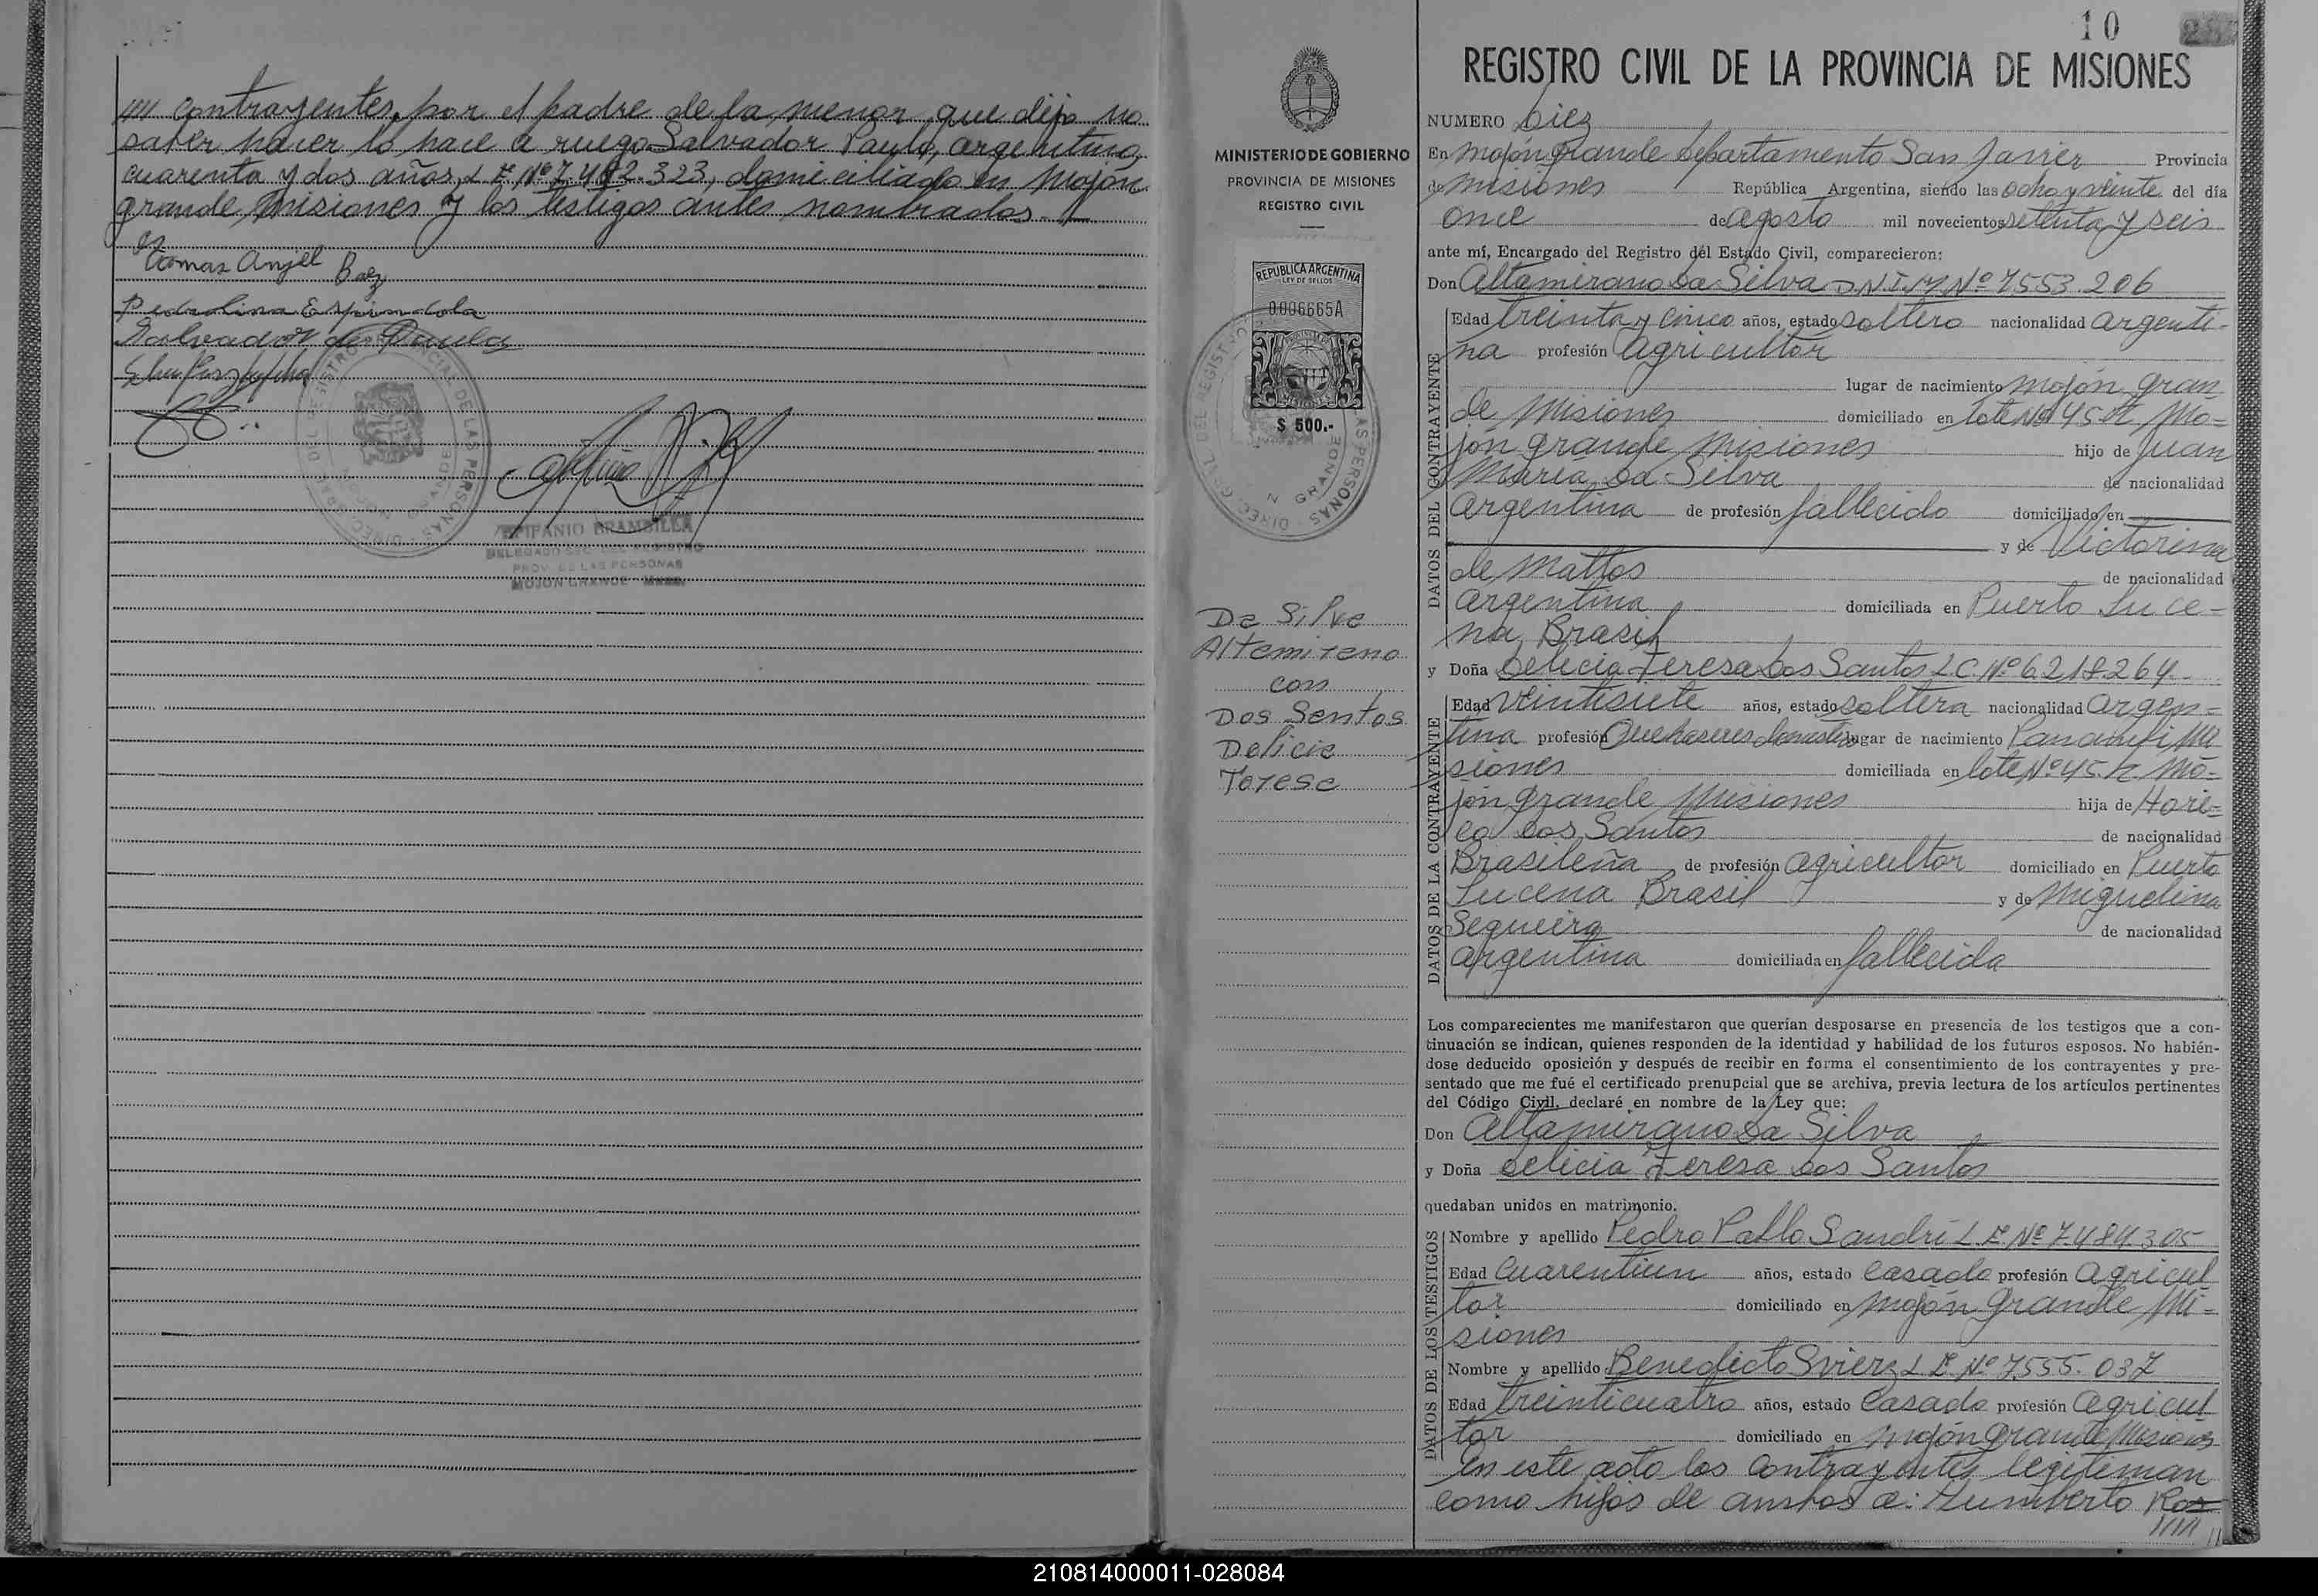 //// contrayentes, por el padre de la menor que dijo no
saber hacer lo hace a ruego Salvador Paulo, argentino,
cuarenta y dos años, L.E. Nº 7.482.323, domiciliado en Mojón
grande Misiones y los testigos antes nombrados.
Tomas Anjel Baez
Pedrolina Espindola
Salvador de Paula
EPIFANIO BRAMBILLA
DELEGADO SEC. DEL REGISTRO
PROV. DE LAS PERSONAS
MOJON GRANDE - MNES.
MINISTERIO DE GOBIERNO
PROVINCIA DE MISIONES
REGISTRO CIVIL
REPUBLICA ARGENTINA
LEY DE SELLOS
0.006665A
$ 500.-
Da Silva
Altamirano
con
Dos Santos
Delicia
Teresa
10
REGISTRO CIVIL DE LA PROVINCIA DE MISIONES
NUMERO Diez
En Mojón grande Departamento San Javier Provincia
de Misiones República Argentina, siendo las ocho y veinte del día
once de Agosto mil novecientos setenta y seis
ante mí, Encargado del Registro del Estado Civil, comparecieron:
Don Altamirano Da Silva D.N.I. M. Nº 7553.206
DATOS DEL CONTRAYENTE
Edad treinta y cinco años, estado soltero nacionalidad argenti-
na profesión agricultor
lugar de nacimiento Mojón gran
de Misiones domiciliado en lote Nº 45 Mo=
jón grande Misiones hijo de Juan
María Da Silva de nacionalidad
argentina de profesión fallecido domiciliado en
y de Victorina
de Mattos de nacionalidad
argentina domiciliada en Puerto Luce=
na, Brasil
y Doña Delicia Teresa Dos Santos L.C. Nº 6.218.264
DATOS DE LA CONTRAYENTE
Edad veintisiete años, estado soltera nacionalidad argen=
tina profesión Quehaseres domestic lugar de nacimiento Panambi Mi
siones domiciliada en lote Nº 45 Mo=
jón grande Misiones hija de Hori=
co Dos Santos de nacionalidad
Brasileña de profesión agricultor domiciliado en Puerto
Lucena Brasil y de Miguelina
Sequeira de nacionalidad
argentina domiciliada en fallecida
Los comparecientes me manifestaron que querían desposarse en presencia de los testigos que a con-
tinuación se indican, quienes responden de la identidad y habilidad de los futuros esposos. No habién-
dose deducido oposición y después de recibir en forma el consentimiento de los contrayentes y pre-
sentado que me fué el certificado prenupcial que se archiva, previa lectura de los artículos pertinentes
del Código Civil, declaré en nombre de la Ley que:
Don Altamirano Da Silva
y Doña Delicia Teresa Dos Santos
quedaban unidos en matrimonio.
DATOS DE LOS TESTIGOS
Nombre y apellido Pedro Pablo Sandri L.E. Nº 7.484.305
Edad Cuarentiun años, estado Casado profesión Agricul
tor domiciliado en Mojón Grande Mi=
siones
Nombre y apellido Benedicto Svierz L.E. Nº 7555.037
Edad treinticuatro años, estado Casado profesión Agricul
tor domiciliado en Mojón Grande Misiones
En este acto los contrayentes legitiman
como hijos de ambos a: Humberto Ros
/////
210814000011-028084